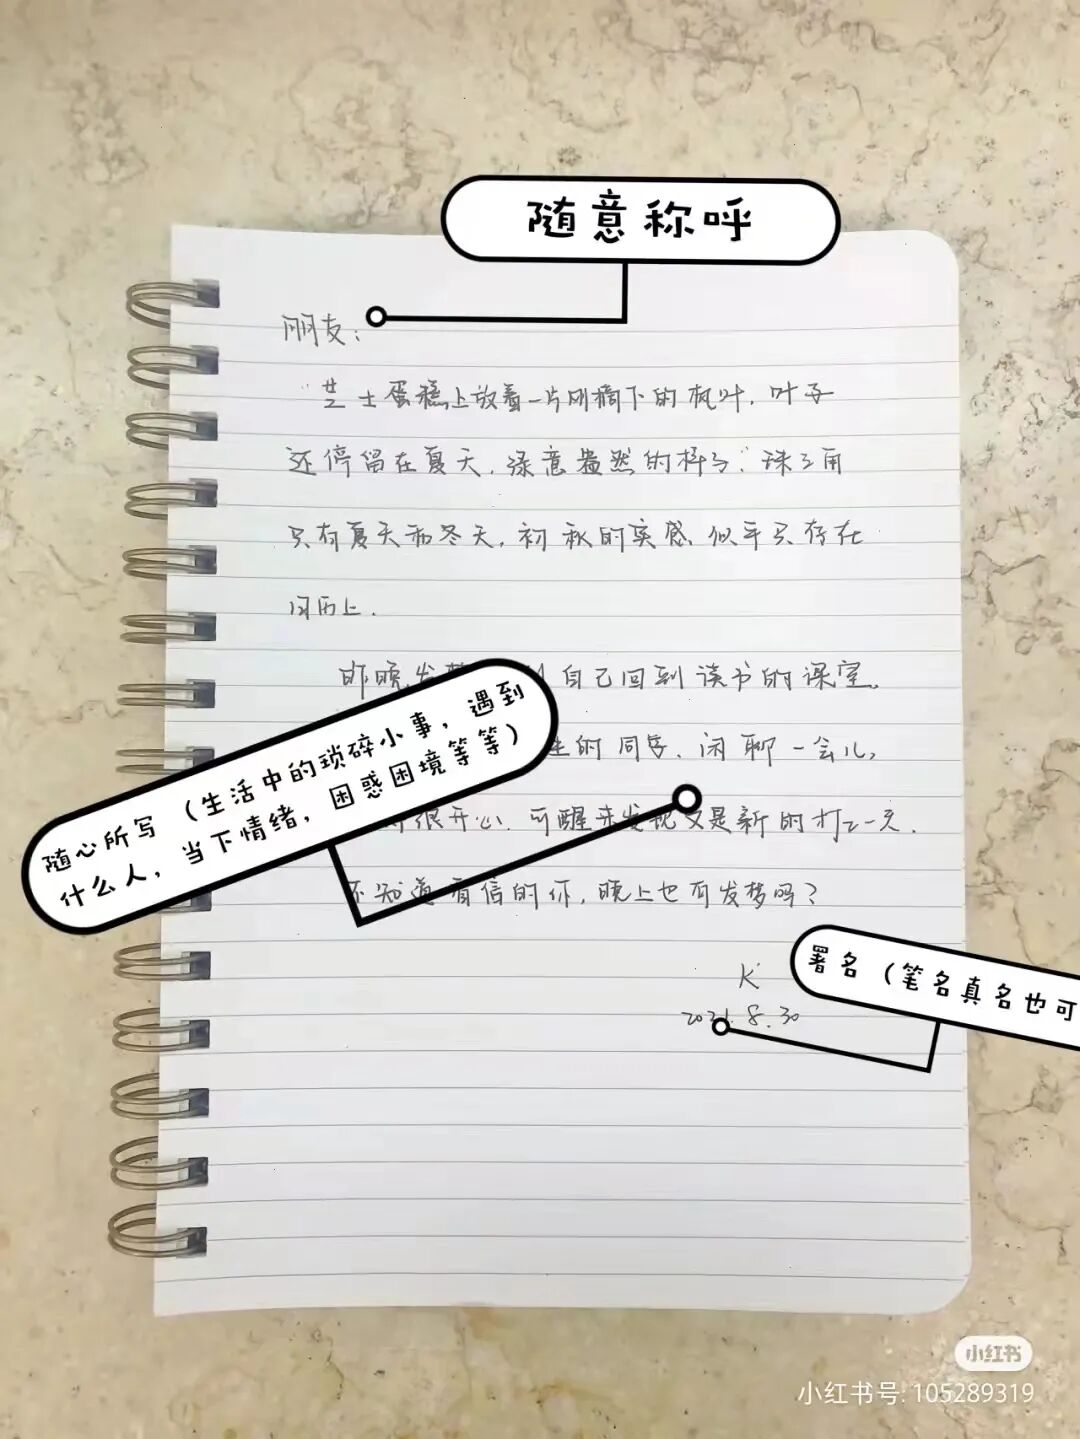 随意称呼
朋友：
“芝士蛋糕上放着一片刚摘下的枫叶，叶子
还停留在夏天，绿意盎然的样子”珠三角
只有夏天和冬天，初秋的实感似乎只存在
日历上．
昨晚发梦 自己回到读书的课室，
的同学，闲聊一会儿，
很开心，可醒来发现又是新的打工一天．
不知道看信的你，晚上也有发梦吗？
随心所写（生活中的琐碎小事，遇到
什么人，当下情绪，困惑困境等等）
K
2021.8.30
署名（笔名真名也可
小红书
小红书号: 105289319